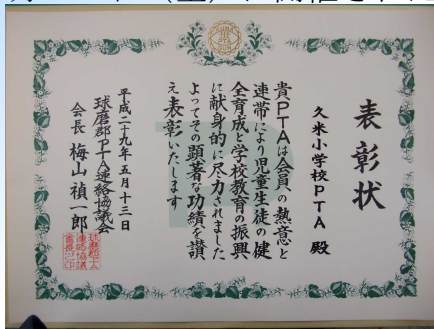 表彰状
久米小学校PTA 殿
貴PTAは会員の熱意と
連帯により児童生徒の健
全育成と学校教育の振興
に献身的に尽力されました
よってその顕著な功績を讃
え表彰いたします
平成二十九年五月十三日
球磨郡PTA連絡協議会
会長 梅山禎一郎